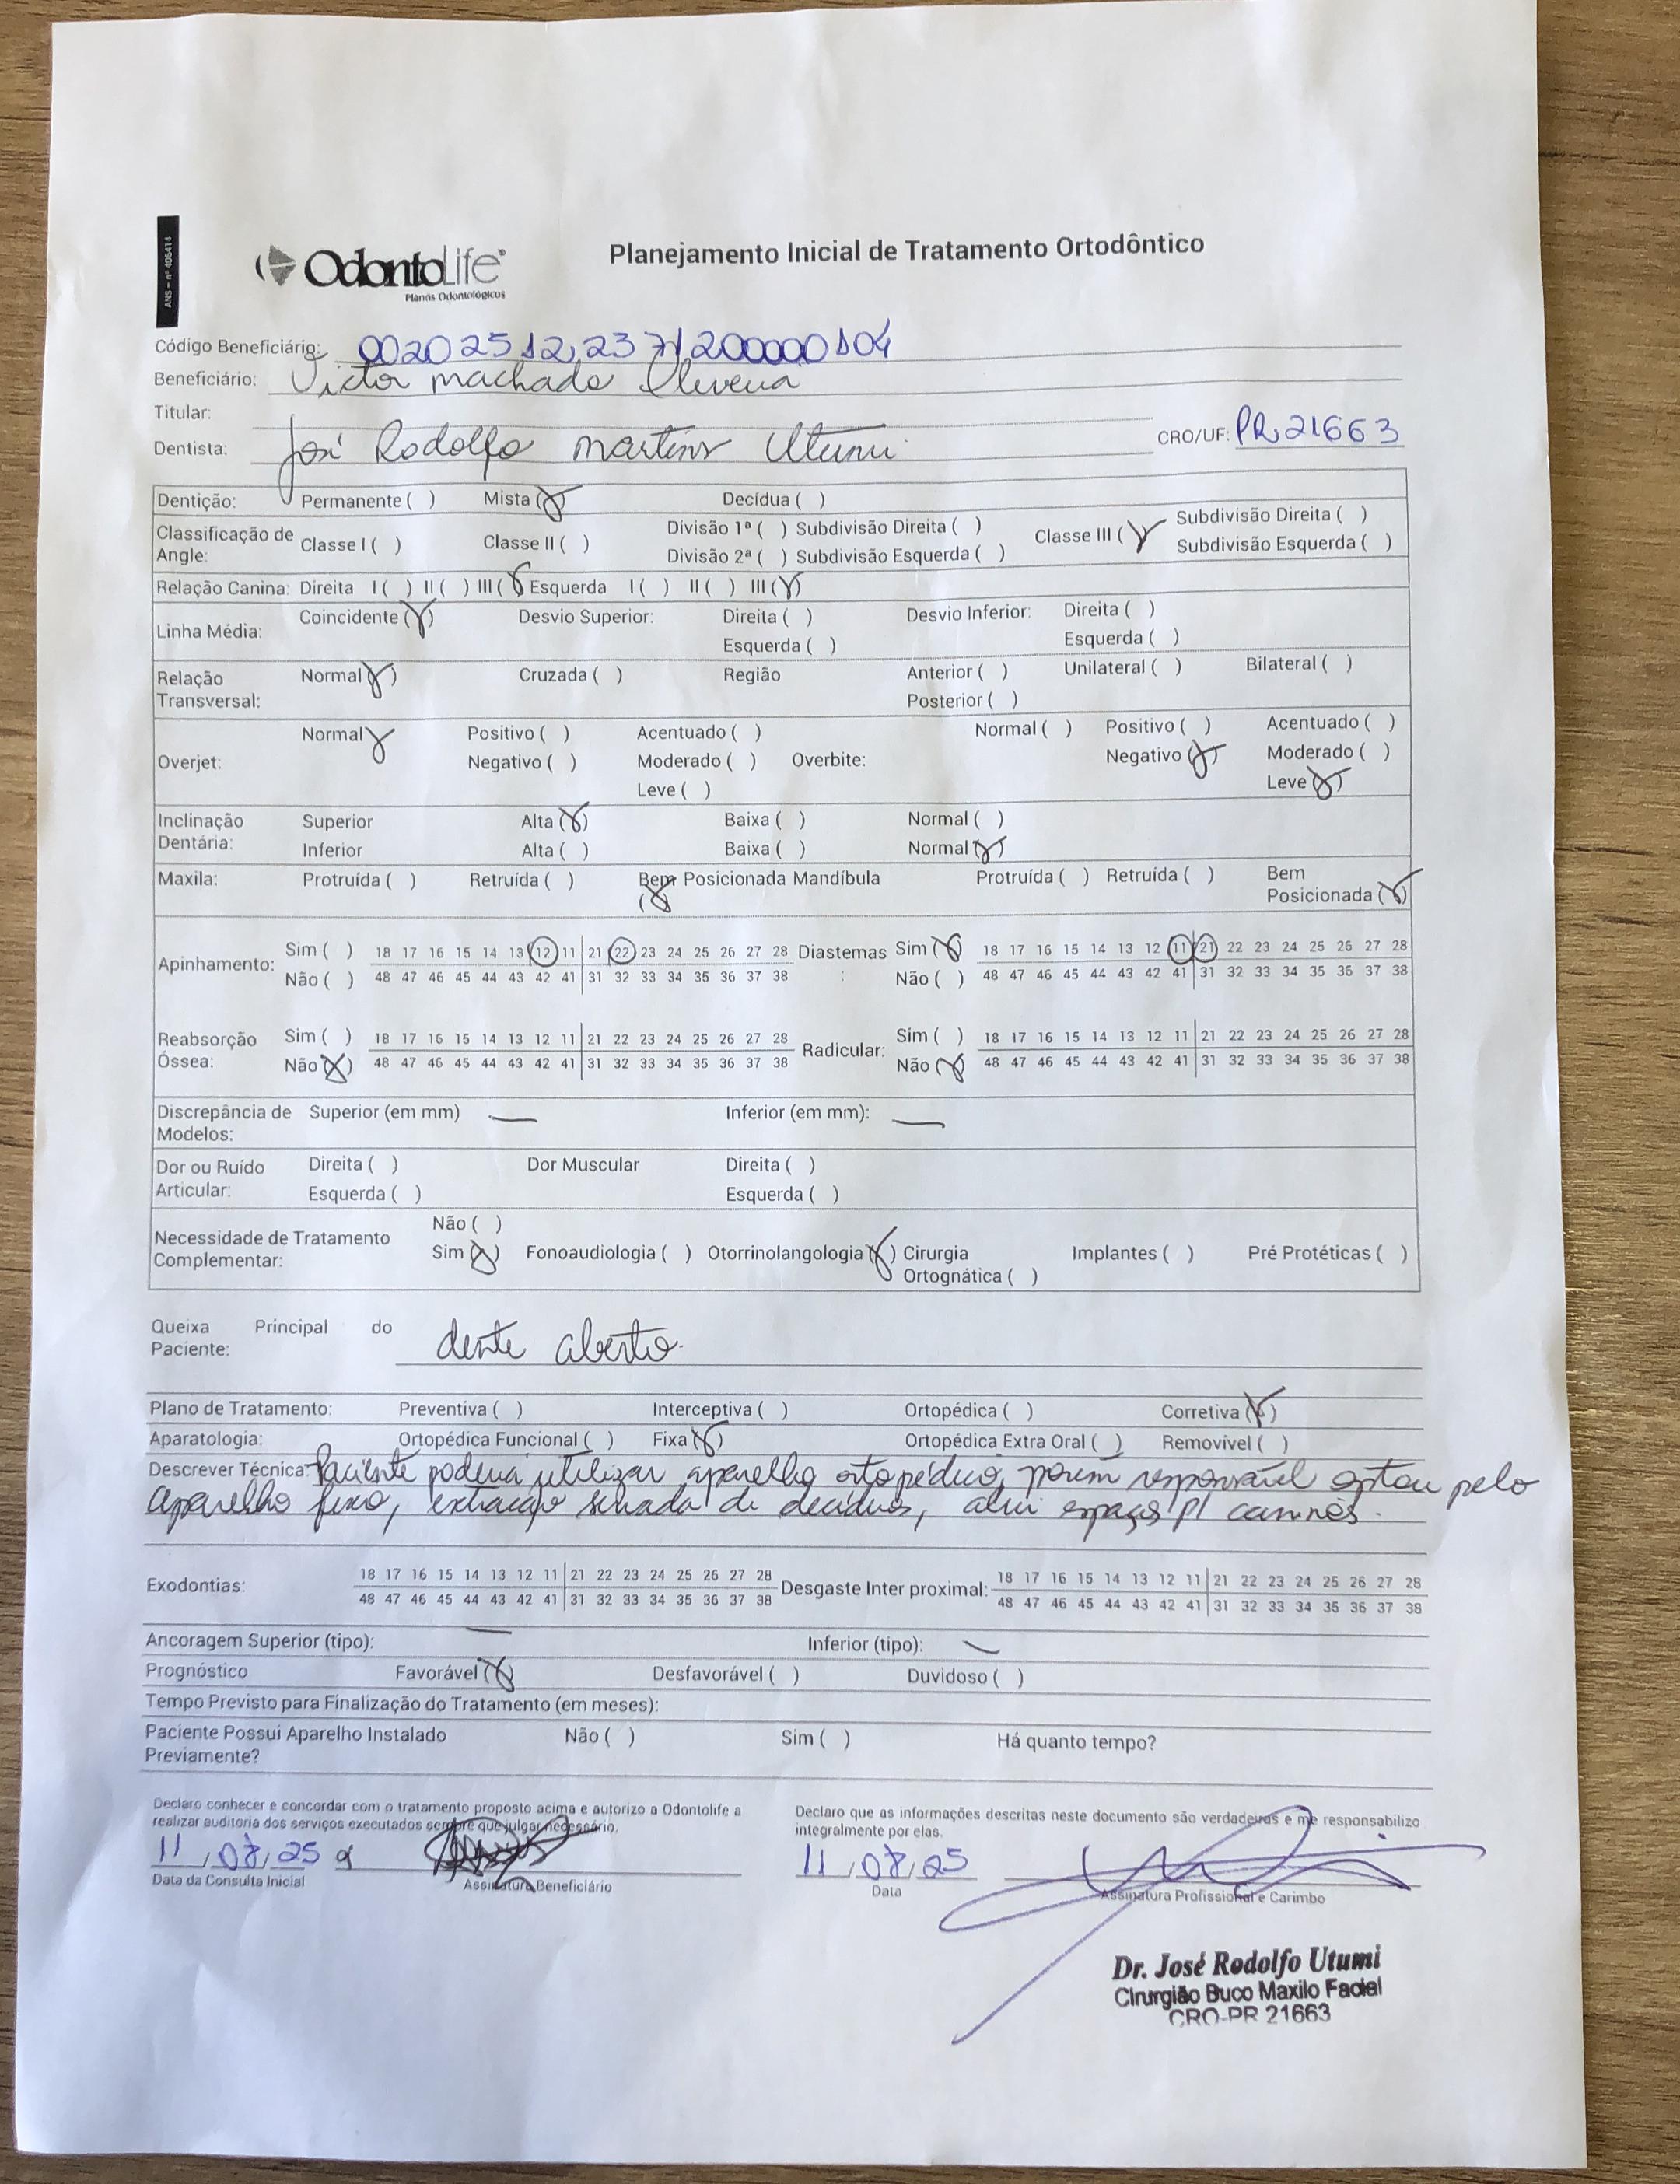 ANS - nº 406414
OdontoLife
Planos Odontológicos
Planejamento Inicial de Tratamento Ortodôntico
Código Beneficiário: 00202512237200000104
Beneficiário: Victor machado Oliveira
Titular:
Dentista: José Rodolfo martins Utumi CRO/UF: PR 21663
Dentição: Permanente ( ) Mista (X) Decídua ( )
Classificação de Angle: Classe I ( ) Classe II ( ) Divisão 1ª ( ) Subdivisão Direita ( ) Divisão 2ª ( ) Subdivisão Esquerda ( ) Classe III (X) Subdivisão Direita ( ) Subdivisão Esquerda ( )
Relação Canina: Direita I ( ) II ( ) III (X) Esquerda I ( ) II ( ) III (X)
Linha Média: Coincidente (X) Desvio Superior: Direita ( ) Esquerda ( ) Desvio Inferior: Direita ( ) Esquerda ( )
Relação Transversal: Normal (X) Cruzada ( ) Região Anterior ( ) Posterior ( ) Unilateral ( ) Bilateral ( )
Overjet: Normal (X) Positivo ( ) Negativo ( ) Acentuado ( ) Moderado ( ) Leve ( ) Overbite: Normal ( ) Positivo ( ) Negativo (X) Acentuado ( ) Moderado ( ) Leve (X)
Inclinação Dentária: Superior Alta (X) Baixa ( ) Normal ( )
Inferior Alta ( ) Baixa ( ) Normal (X)
Maxila: Protruída ( ) Retruída ( ) Bem Posicionada (X) Mandíbula Protruída ( ) Retruída ( ) Bem Posicionada (X)
Apinhamento: Sim ( ) 18 17 16 15 14 13 12 11 21 22 23 24 25 26 27 28 Diastemas : Sim (X) 18 17 16 15 14 13 12 11 21 22 23 24 25 26 27 28
Não ( ) 48 47 46 45 44 43 42 41 31 32 33 34 35 36 37 38 Não ( ) 48 47 46 45 44 43 42 41 31 32 33 34 35 36 37 38
Reabsorção Óssea: Sim ( ) 18 17 16 15 14 13 12 11 21 22 23 24 25 26 27 28 Radicular: Sim ( ) 18 17 16 15 14 13 12 11 21 22 23 24 25 26 27 28
Não (X) 48 47 46 45 44 43 42 41 31 32 33 34 35 36 37 38 Não (X) 48 47 46 45 44 43 42 41 31 32 33 34 35 36 37 38
Discrepância de Modelos: Superior (em mm) — Inferior (em mm): —
Dor ou Ruído Articular: Direita ( ) Esquerda ( ) Dor Muscular Direita ( ) Esquerda ( )
Necessidade de Tratamento Complementar: Não ( ) Sim (X) Fonoaudiologia ( ) Otorrinolangologia (X) Cirurgia Ortognática ( ) Implantes ( ) Pré Protéticas ( )
Queixa Principal do Paciente: dente aberto
Plano de Tratamento: Preventiva ( ) Interceptiva ( ) Ortopédica ( ) Corretiva (X)
Aparatologia: Ortopédica Funcional ( ) Fixa (X) Ortopédica Extra Oral ( ) Removível ( )
Descrever Técnica: Paciente poderia utilizar aparelho ortopédico, porem responsável optou pelo
aparelho fixo, extração seriada de decíduos, abrir espaços p/ caninos.
Exodontias: 18 17 16 15 14 13 12 11 21 22 23 24 25 26 27 28 Desgaste Inter proximal: 18 17 16 15 14 13 12 11 21 22 23 24 25 26 27 28
48 47 46 45 44 43 42 41 31 32 33 34 35 36 37 38 48 47 46 45 44 43 42 41 31 32 33 34 35 36 37 38
Ancoragem Superior (tipo): — Inferior (tipo): —
Prognóstico Favorável (X) Desfavorável ( ) Duvidoso ( )
Tempo Previsto para Finalização do Tratamento (em meses):
Paciente Possui Aparelho Instalado Previamente? Não ( ) Sim ( ) Há quanto tempo?
Declaro conhecer e concordar com o tratamento proposto acima e autorizo a Odontolife a
realizar auditoria dos serviços executados sempre que julgar necessário.
11/08/25
Data da Consulta Inicial Assinatura Beneficiário
Declaro que as informações descritas neste documento são verdadeiras e me responsabilizo
integralmente por elas.
11/08/25
Data Assinatura Profissional e Carimbo
Dr. José Rodolfo Utumi
Cirurgião Buco Maxilo Facial
CRO-PR 21663